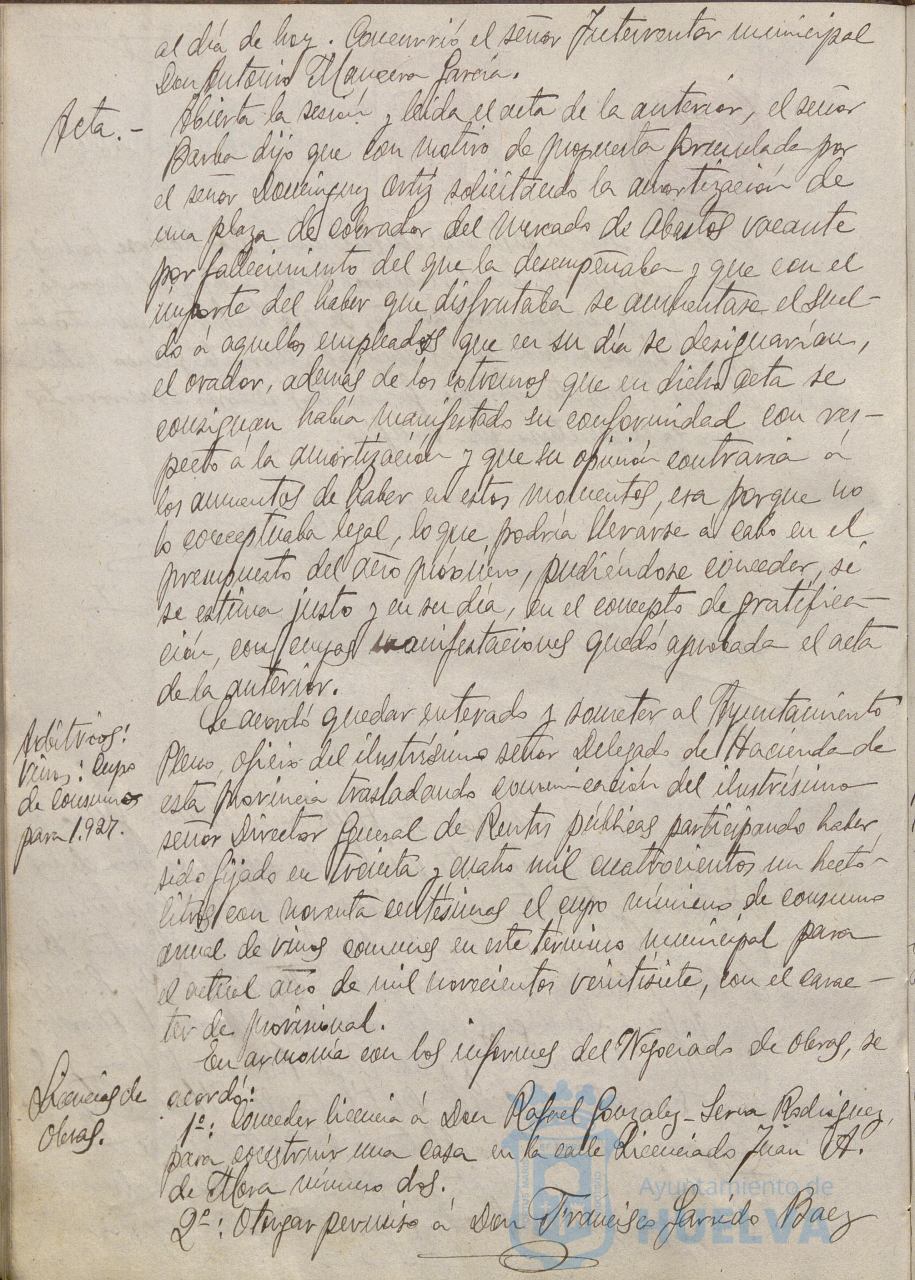 al día de hoy. Concurrió el señor Interventor municipal
Don Antonio Mancera García.
Acta.- Abierta la sesión y leída el acta de la anterior, el señor
Barba dijo que con motivo de propuesta formulada por
el señor Domínguez Ortiz solicitando la amortización de
una plaza de cobrador del mercado de Abastos vacante
por fallecimiento del que la desempeñaba y que con el
importe del haber que disfrutaba se aumentase el suel-
do á aquellos empleados que en su día se designarían,
el orador, además de los extremos que en dicha acta se
consignan había manifestado su conformidad con res-
pecto á la amortización y que su opinión contraria á
los aumentos de haber en estos momentos, era porque no
lo conceptuaba legal, lo que podría llevarse a cabo en el
presupuesto del año próximo, pudiéndose conceder, si
se estima justo y en su día, en el concepto de gratifica-
ción, con cuyas manifestaciones quedó aprobada el acta
de la anterior.
Arbitrios:
vinos: cupo
de consumo
para 1.927.
Se acordó quedar enterado y someter al Ayuntamiento
Pleno, oficio del ilustrísimo señor Delegado de Hacienda de
esta provincia trasladando comunicación del ilustrísimo
señor Director General de Rentas públicas participando haber
sido fijado en treinta y cuatro mil cuatrocientos un hectó-
litros con noventa centésimas el cupo mínimo de consumo
anual de vinos comunes en este término municipal para
el actual año de mil novecientos veintisiete, con el carac-
ter de provisional.
Licencias de
Obras.
En armonía con los informes del Negociado de obras, se
acordó:
1º: Conceder licencia á Don Rafael Gonzalez-Serna Rodriguez,
para construir una casa en la calle Licenciado Juan A.
de Mora número dos.
2º: Otorgar permiso á Don Francisco Garrido Baez
Ayuntamiento de
HUELVA